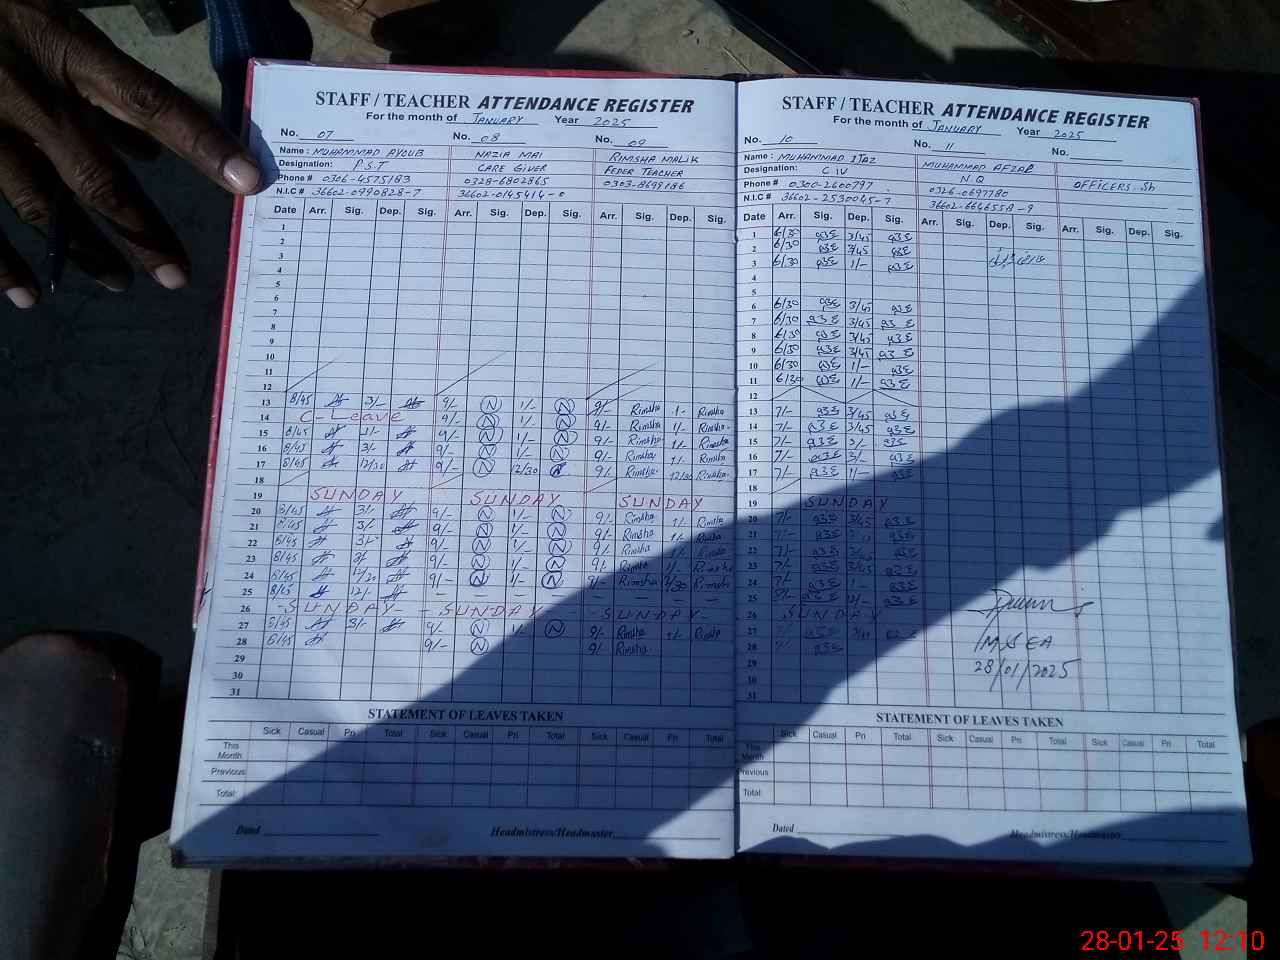 STAFF / TEACHER ATTENDANCE REGISTER
For the month of JANUARY Year 2025
No. 07 No. 08 No. 09
Name : MUHAMMAD AYOUB NAZIA MAI RIMSHA MALIK
Designation: P.S.T CARE GIVER FEDER TEACHER
Phone # 0306-4575183 0328-6802865 0303-8699186
N.I.C # 36602-0990828-7 36602-0145414-0
Date Arr. Sig. Dep. Sig. Arr. Sig. Dep. Sig. Arr. Sig. Dep. Sig.
1
2
3
4
5
6
7
8
9
10
11
12
13 8/45 3/- 9/- N 1/- N 9/- Rimsha 1- Rimsha
14 C-Leave 9/- N 1/- N 9/- Rimsha 1/- Rimsha
15 8/45 1/- 9/- N 1/- N 9/- Rimsha 1/- Rimsha
16 8/45 3/- 9/- N 1/- N 9/- Rimsha 1/- Rimsha
17 8/45 12/30 9/- N 12/30 N 9/- Rimsha 12/30 Rimsha
18
19 SUNDAY SUNDAY SUNDAY
20 8/45 3/- 9/- N 1/- N 9/- Rimsha 1/- Rimsha
21 8/45 3/- 9/- N 1/- N 9/- Rimsha 1/- Rimsha
22 8/45 3/- 9/- N 1/- N 9/- Rimsha 1/- Rimsha
23 8/45 3/- 9/- N 1/- N 9/- Rimsha 1/- Rimsha
24 8/45 12/30 9/- N 1/- N 9/- Rimsha Rimsha
25 8/45 12/-
26 -SUNDAY- -SUNDAY- -SUNDAY-
27 8/45 3/- 9/- N 1/- N 9/- Rimsha 1/- Rimsha
28 8/45 9/- N 9/ Rimsha
29
30
31
STATEMENT OF LEAVES TAKEN
Sick Casual Pri Total Sick Casual Pri Total Sick Casual Pri Total
This Month
Previous
Total:
Dated Headmistress/Headmaster
STAFF / TEACHER ATTENDANCE REGISTER
For the month of JANUARY Year 2025
No. 10 No. 11 No.
Name : MUHAMMAD IJAZ MUHAMMAD AFZAL
Designation: C IV N Q OFFICERS. Sb
Phone # 0300-2600797 0326-0697780
N.I.C # 36602-2530045-7 36602-6646558-9
Date Arr. Sig. Dep. Sig. Arr. Sig. Dep. Sig. Arr. Sig. Dep. Sig.
1 6/30 3/45
2 6/30 3/45
3 6/30 1/-
4
5
6 6/30 3/45
7 6/30 3/45
8 6/30 3/45
9 6/30 3/45
10 6/30 1/-
11 6/30 1/-
12
13 7/- 3/45
14 7/- 3/45
15 7/- 3/-
16 7/- 3/-
17 7/- 1/-
18
19 SUNDAY
20 7/- 3/45
21 7/-
22 7/- 3/45
23 7/- 3/45
24 7/- 1-
25
26 SUNDAY
27
28
29
30
31
IM SEA
28/01/2025
STATEMENT OF LEAVES TAKEN
Sick Casual Pri Total Sick Casual Pri Total Sick Casual Pri Total
This Month
Previous
Total:
Dated Headmistress/Headmaster
28-01-25 12:10